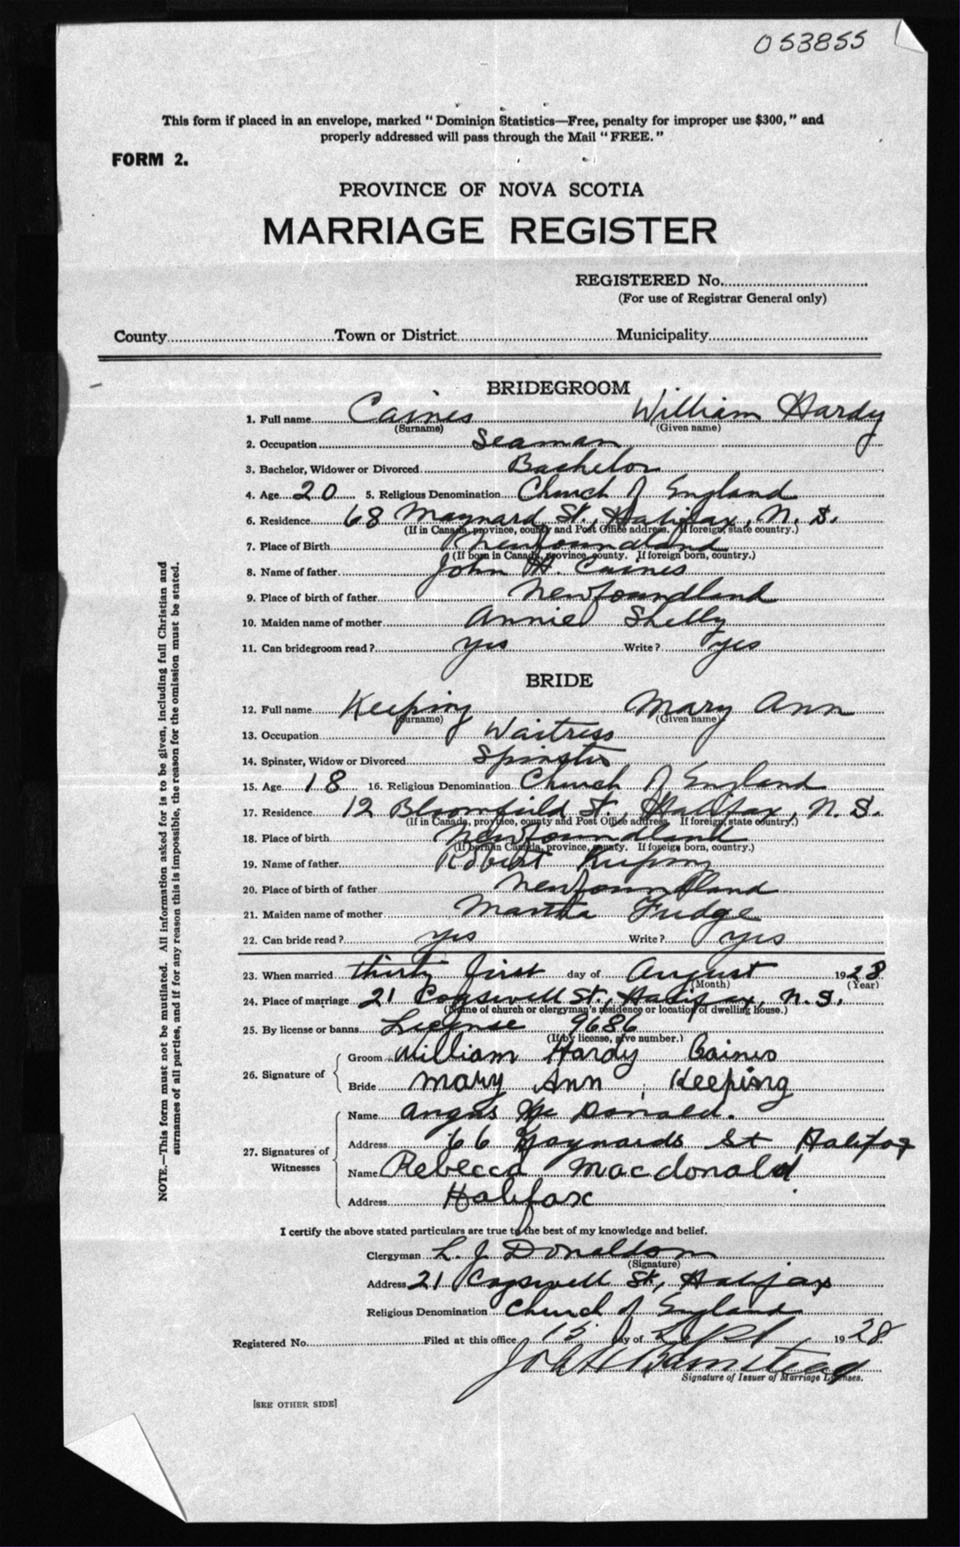 053855
This form if placed in an envelope, marked "Dominion Statistics—Free, penalty for improper use $300," and
properly addressed will pass through the Mail "FREE."
FORM 2.
PROVINCE OF NOVA SCOTIA
MARRIAGE REGISTER
REGISTERED No.
(For use of Registrar General only)
County Town or District Municipality
BRIDEGROOM
1. Full name Caines William Hardy
(Surname) (Given name)
2. Occupation Seaman
3. Bachelor, Widower or Divorced Bachelor
4. Age 20 5. Religious Denomination Church of England
6. Residence 68 Maynard St., Halifax, N.S.
(If in Canada, province, county and Post Office address. If foreign, state country.)
7. Place of Birth Newfoundland
(If born in Canada, province, county. If foreign born, country.)
8. Name of father John H. Caines
9. Place of birth of father Newfoundland
10. Maiden name of mother Annie Shelly
11. Can bridegroom read? yes Write? yes
BRIDE
12. Full name Keeping Mary Ann
(Surname) (Given name)
13. Occupation Waitress
14. Spinster, Widow or Divorced Spinster
15. Age 18 16. Religious Denomination Church of England
17. Residence 12 Bloomfield St., Halifax, N.S.
(If in Canada, province, county and Post Office address. If foreign, state country.)
18. Place of birth Newfoundland
(If born in Canada, province, county. If foreign born, country.)
19. Name of father Robert Keeping
20. Place of birth of father Newfoundland
21. Maiden name of mother Martha Fudge
22. Can bride read? yes Write? yes
23. When married thirty first day of August 1928
(Month) (Year)
24. Place of marriage 21 Cogswell St., Halifax, N.S.
(Name of church or clergyman's residence or location of dwelling house.)
25. By license or banns License 9686
(If by license, give number.)
26. Signature of Groom William Hardy Caines
Bride Mary Ann Keeping
27. Signatures of Witnesses Name Angus Mc Donald.
Address 66 Maynards St Halifax
Name Rebecca Macdonald
Address Halifax
I certify the above stated particulars are true to the best of my knowledge and belief.
Clergyman L. J. Donaldson
(Signature)
Address 21 Cogswell St., Halifax
Religious Denomination Church of England
Registered No. Filed at this office 15 day of Sept 1928
Signature of Issuer of Marriage Licenses.
[SEE OTHER SIDE]
NOTE.—This form must not be mutilated. All information asked for is to be given, including full Christian and
surnames of all parties, and if for any reason this is impossible, the reason for the omission must be stated.